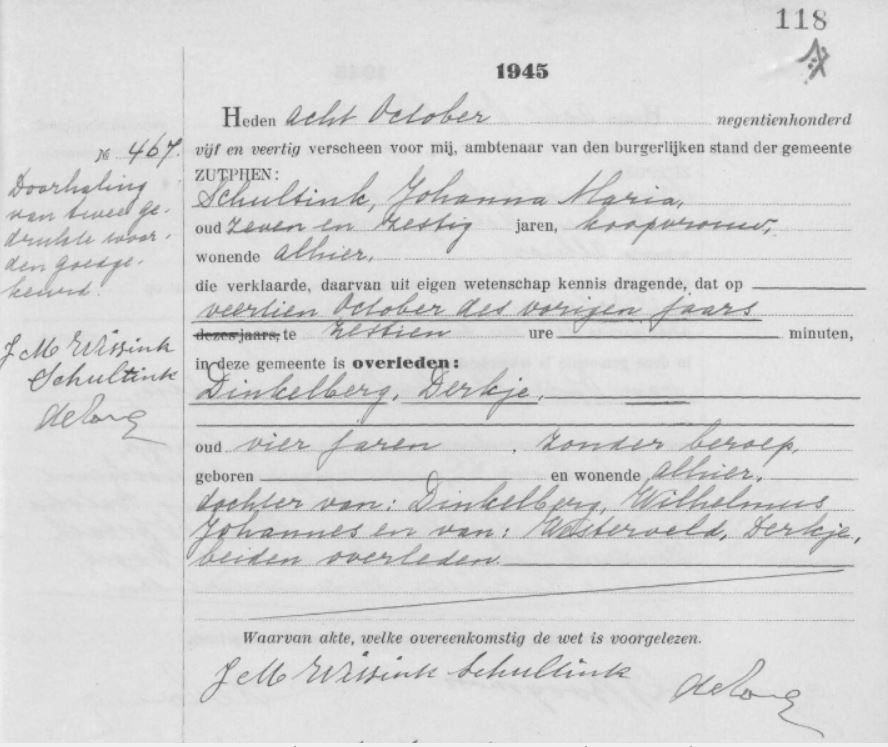 118
1945
Heden acht October negentienhonderd
№ 467.
vijf en veertig verscheen voor mij, ambtenaar van den burgerlijken stand der gemeente
ZUTPHEN:
Schultink, Johanna Maria,
oud zeven en zestig jaren, koopvrouw,
wonende alhier,
die verklaarde, daarvan uit eigen wetenschap kennis dragende, dat op
veertien October des vorigen jaars
dezes jaars, te zestien ure minuten,
in deze gemeente is overleden:
Dinkelberg, Derkje,
oud vier jaren, zonder beroep,
geboren en wonende alhier,
dochter van: Dinkelberg, Wilhelmus
Johannes en van: Westerveld, Derkje,
beiden overleden.
Doorhaling
van twee ge-
drukte woor-
den goedge-
keurd.
J M Wissink
Schultink
de Jong
Waarvan akte, welke overeenkomstig de wet is voorgelezen.
J M Wissink Schultink de Jong